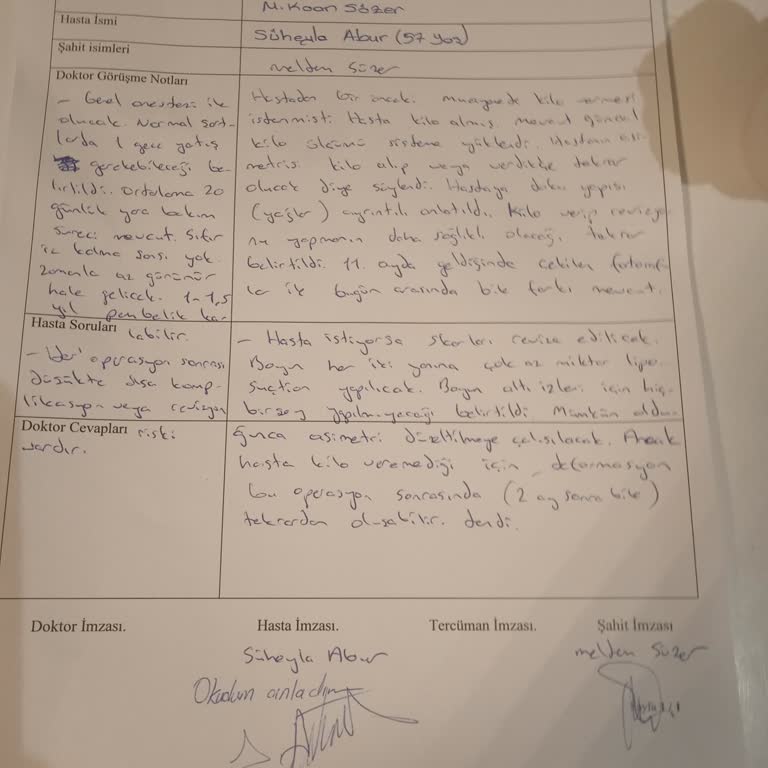 M. Kaan Süzer
Hasta İsmi
Süheyla Abur (57 yaş)
Şahit isimleri
Melden Süzer
Doktor Görüşme Notları
- Genel anestezi ile
olunacak. Normal şart-
larda 1 gece yatış
gerekebileceği be-
lirtildi. Ortalama 20
günlük yara bakım
süreci mevcut. Sıfır
iz kalma şansı yok.
Zamanla az görünür
hale gelicek. 1-1,5
yıl pembelik ka-
Hastadan bir önceki muayenede kilo vermesi
istenmişti. Hasta kilo almış. Mevcut güncel
kilo ölçümü sisteme yüklendi. Hastanın asi-
metrisi kilo alıp veya verdikçe tekrar
olucak diye söylendi. Hastaya doku yapısı
(yağlar) ayrıntılı anlatıldı. Kilo verip revizyo-
nu yapmanın daha sağlıklı olacağı tekrar
belirtildi. 11. ayda geldiğinde çekilen fotoğraf-
lar ile bugün arasında bile farkı mevcut.
Hasta Soruları
labilir.
- Her operasyon sonrası
düşükte olsa komp-
likasyon veya revizyon
- Hasta istiyorsa skarları revize edilicek.
Boyun her iki yanına çok az miktar lipo-
suction yapılıcak. Boyun altı izleri için hiç-
birşey yapılmayacağı belirtildi. Mümkün oldu-
Doktor Cevapları
riski
vardır.
ğunca asimetri düzeltilmeye çalışılacak. Ancak
hasta kilo veremediği için deformasyon
bu operasyon sonrasında (2 ay sonra bile)
tekrardan oluşabilir. dendi.
Doktor İmzası. Hasta İmzası. Tercüman İmzası. Şahit İmzası
Süheyla Abur
Melden Süzer
Okudum anladım